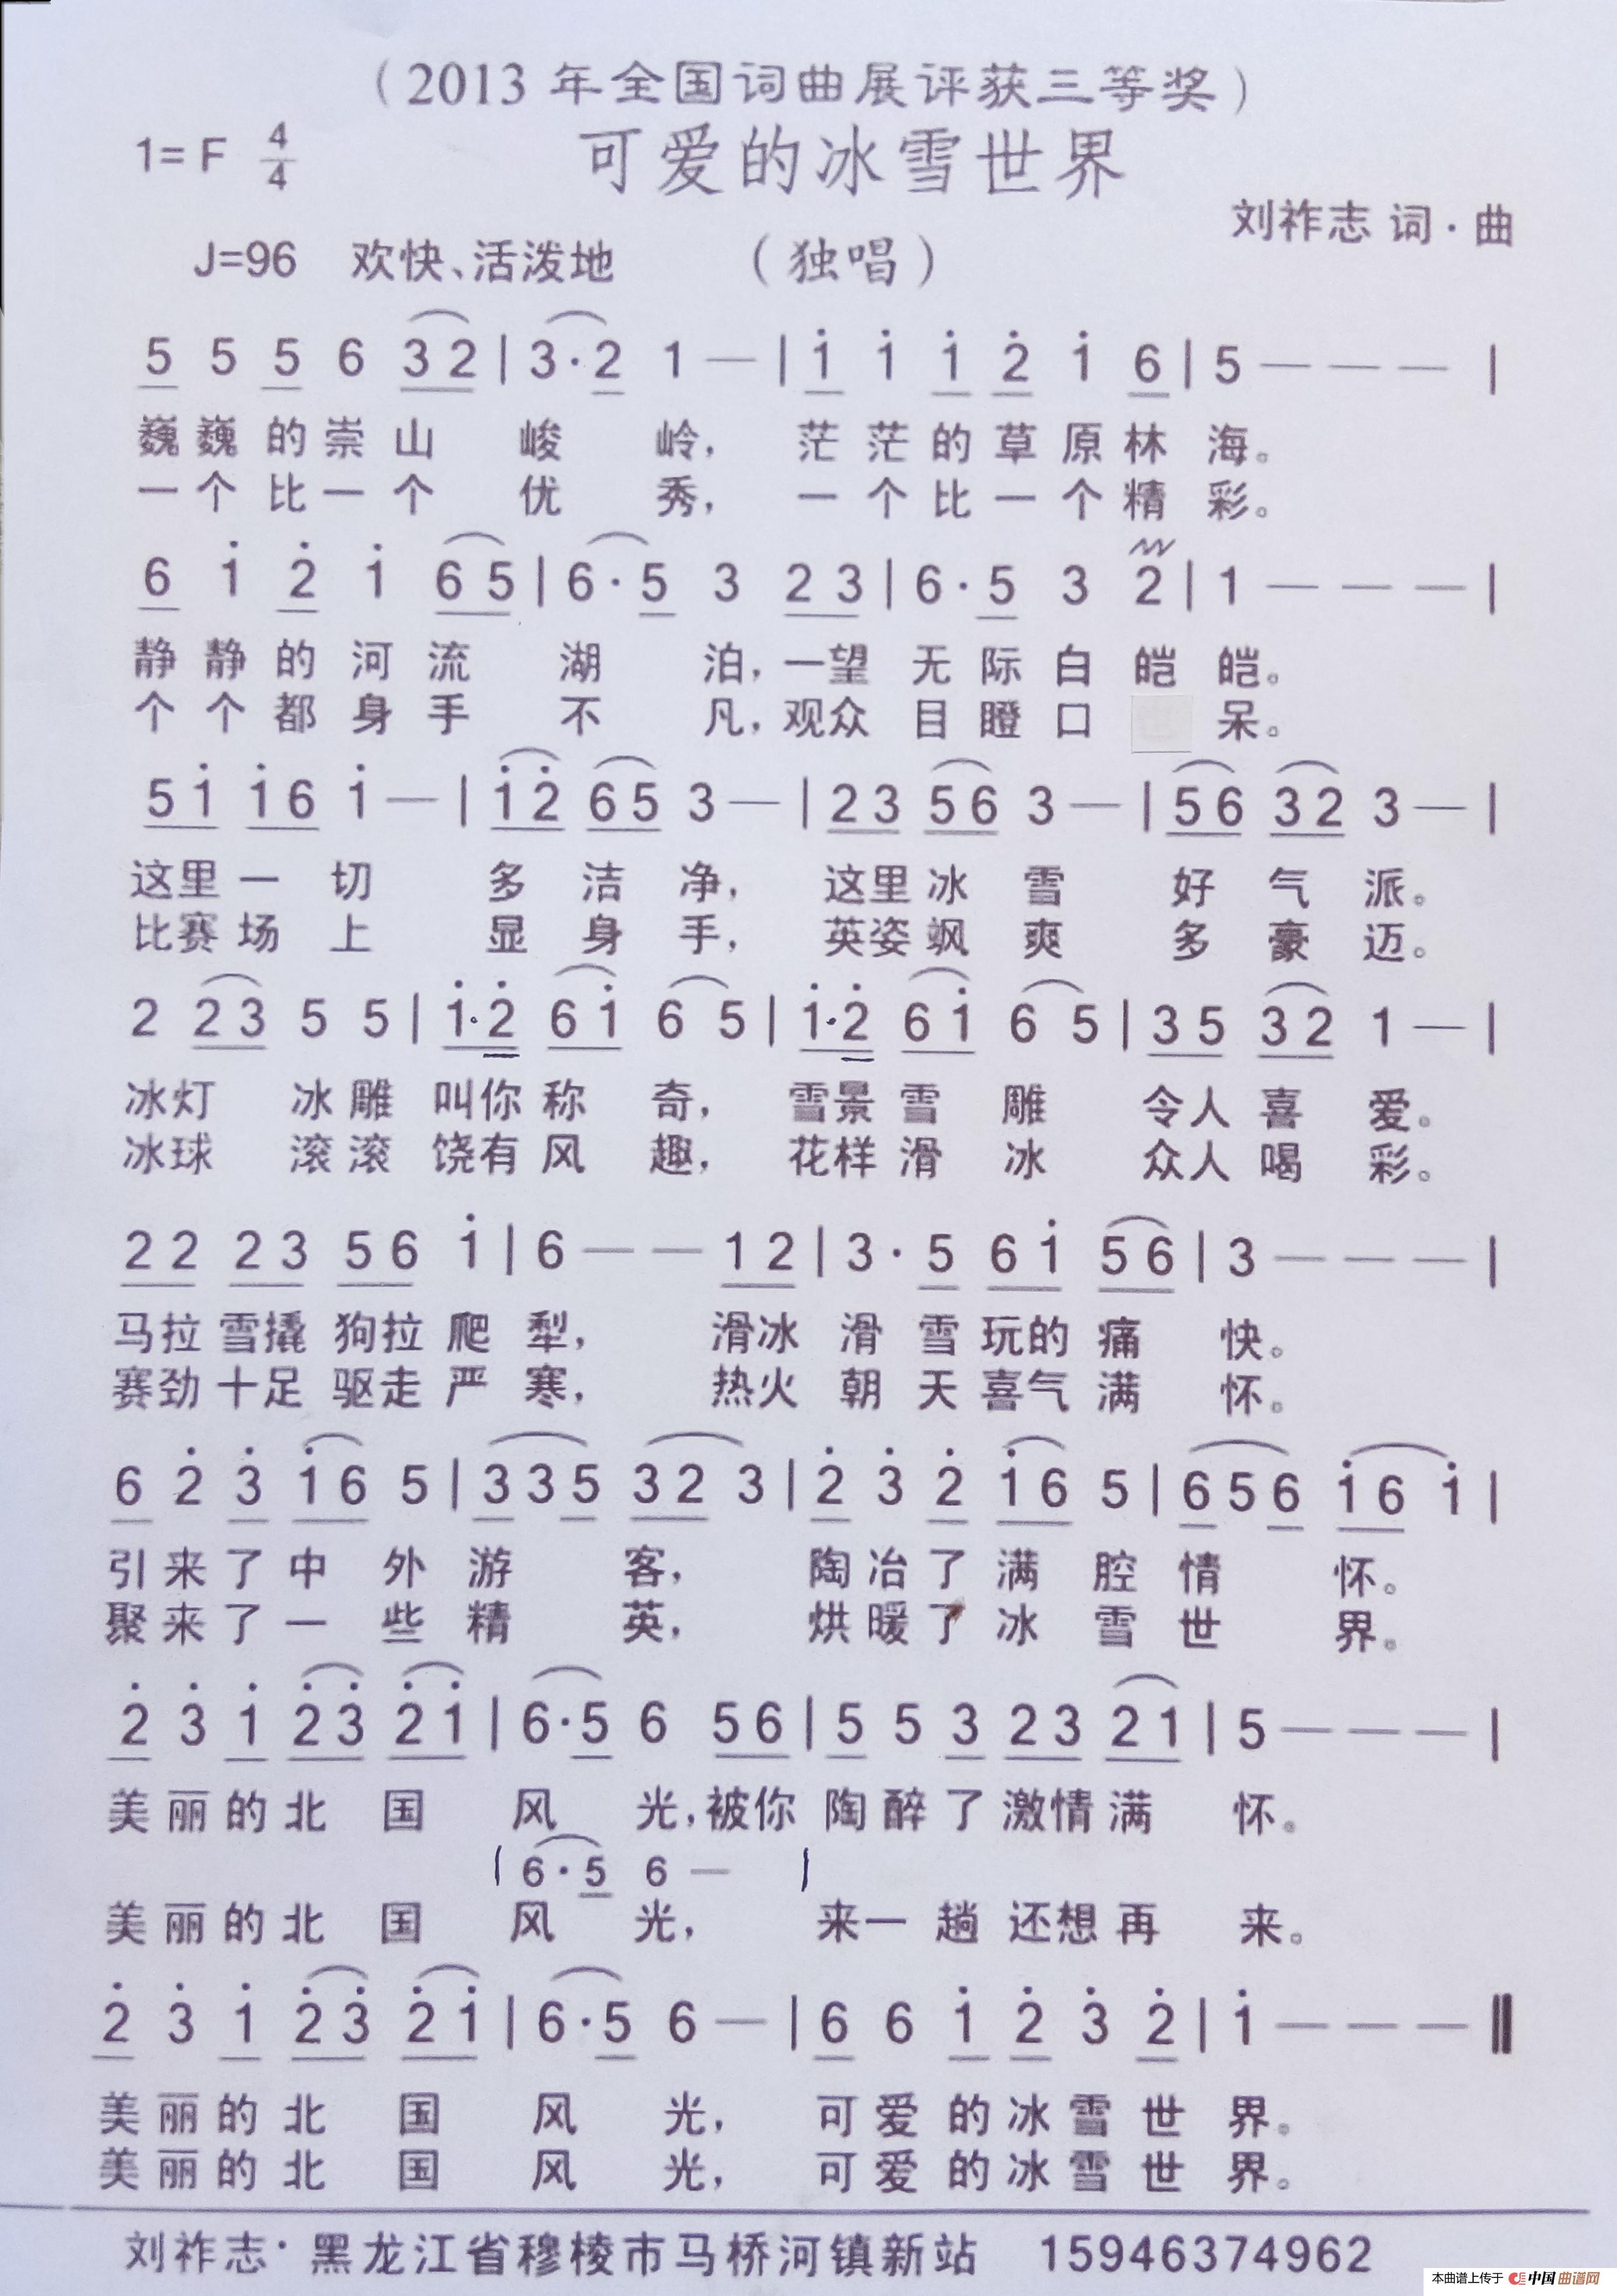 （2013年全国词曲展评获三等奖）
1=F 4/4 可爱的冰雪世界
刘祚志 词·曲
J=96 欢快、活泼地 （独唱）
5 5 5 6 3 2 | 3·2 1 — | i i i 2 i 6 | 5 — — — |
巍巍的崇山 峻 岭， 茫茫的草原林 海。
一个比一个 优 秀， 一个比一个精 彩。
6 i 2 i 6 5 | 6·5 3 2 3 | 6·5 3 2 | 1 — — — |
静静的河流 湖 泊，一望 无际白皑 皑。
个个都身手 不 凡，观众 目瞪口 呆。
5 i i 6 i — | i 2 6 5 3 — | 2 3 5 6 3 — | 5 6 3 2 3 — |
这里一 切 多 洁 净， 这里冰 雪 好 气 派。
比赛场 上 显 身 手， 英姿飒 爽 多 豪 迈。
2 2 3 5 5 | i·2 6 i 6 5 | i·2 6 i 6 5 | 3 5 3 2 1 — |
冰灯 冰雕 叫你称 奇， 雪景雪 雕 令人喜 爱。
冰球 滚滚 饶有风 趣， 花样滑 冰 众人喝 彩。
2 2 2 3 5 6 i | 6 — — 1 2 | 3·5 6 i 5 6 | 3 — — — |
马拉 雪撬 狗拉 爬 犁， 滑冰 滑 雪 玩的 痛 快。
赛劲 十足 驱走 严 寒， 热火 朝 天 喜气 满 怀。
6 2 3 i 6 5 | 3 3 5 3 2 3 | 2 3 2 i 6 5 | 6 5 6 i 6 i |
引来了中 外 游 客， 陶冶了满 腔 情 怀。
聚来了一 些 精 英， 烘暖了冰 雪 世 界。
2 3 i 2 3 2 i | 6·5 6 5 6 | 5 5 3 2 3 2 1 | 5 — — — |
美丽的北 国 风 光，被你 陶醉了激情满 怀。
| 6·5 6 — |
美丽的北 国 风 光， 来一趟还想再 来。
2 3 i 2 3 2 i | 6·5 6 — | 6 6 i 2 3 2 | i — — — ‖
美丽的北 国 风 光， 可爱的冰雪世 界。
美丽的北 国 风 光， 可爱的冰雪世 界。
刘祚志·黑龙江省穆棱市马桥河镇新站 15946374962
本曲谱上传于 中国曲谱网